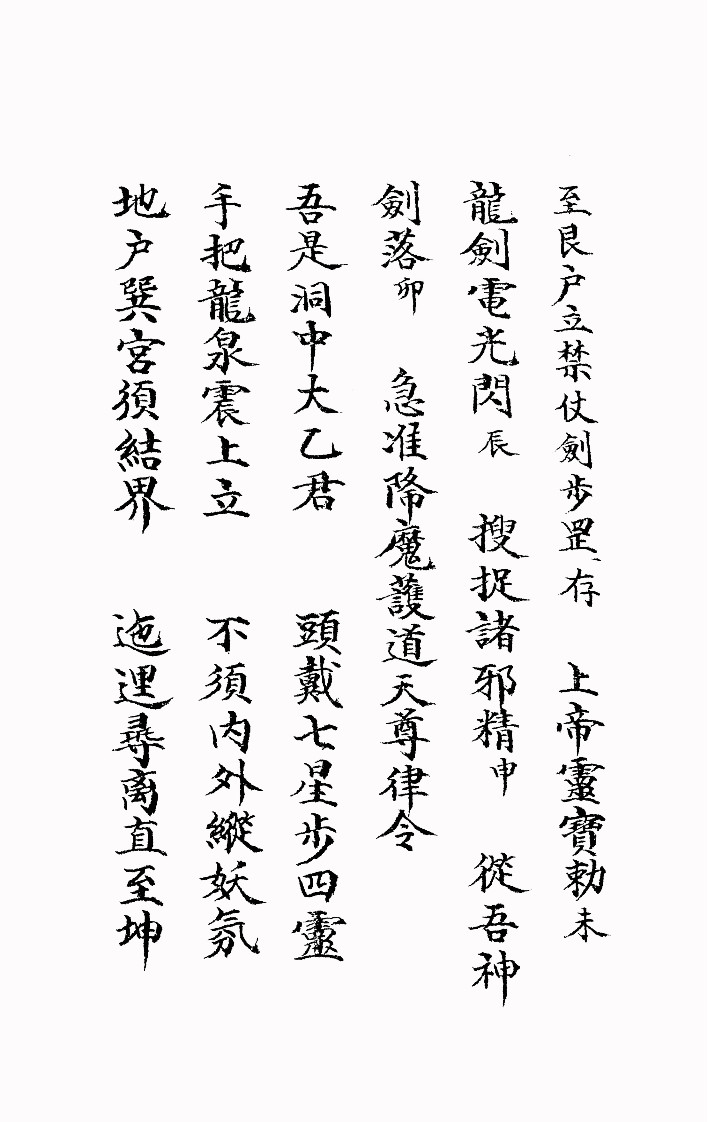 至艮户立禁仗劍步罡存　上帝靈寶勅未
龍劍電光閃辰　搜捉諸邪精申　從吾神
劍落卯　急准降魔護道天尊律令
吾是洞中大乙君　頭戴七星步四靈
手把龍泉震上立　不須内外縱妖氛
地户巽宮須結界　迤逕尋离直至坤